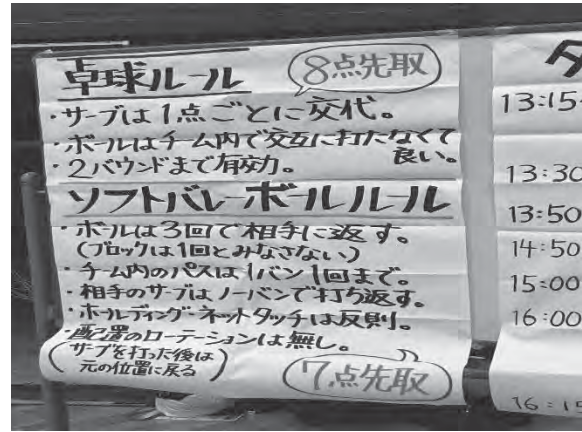 卓球ルール
8点先取
・サーブは1点ごとに交代。
・ボールはチーム内で交互に打たなくて
良い。
・2バウンドまで有効。
ソフトバレーボールルール
・ボールは3回で相手に返す。
(ブロックは1回とみなさない)
・チーム内のパスは1バン1回まで。
・相手のサーブはノーバンで打ち返す。
・ホールディング・ネットタッチは反則。
・配置のローテーションは無し。
(サーブを打った後は
元の位置に戻る)
7点先取
13:15
13:30
13:50
14:50
15:00
16:00